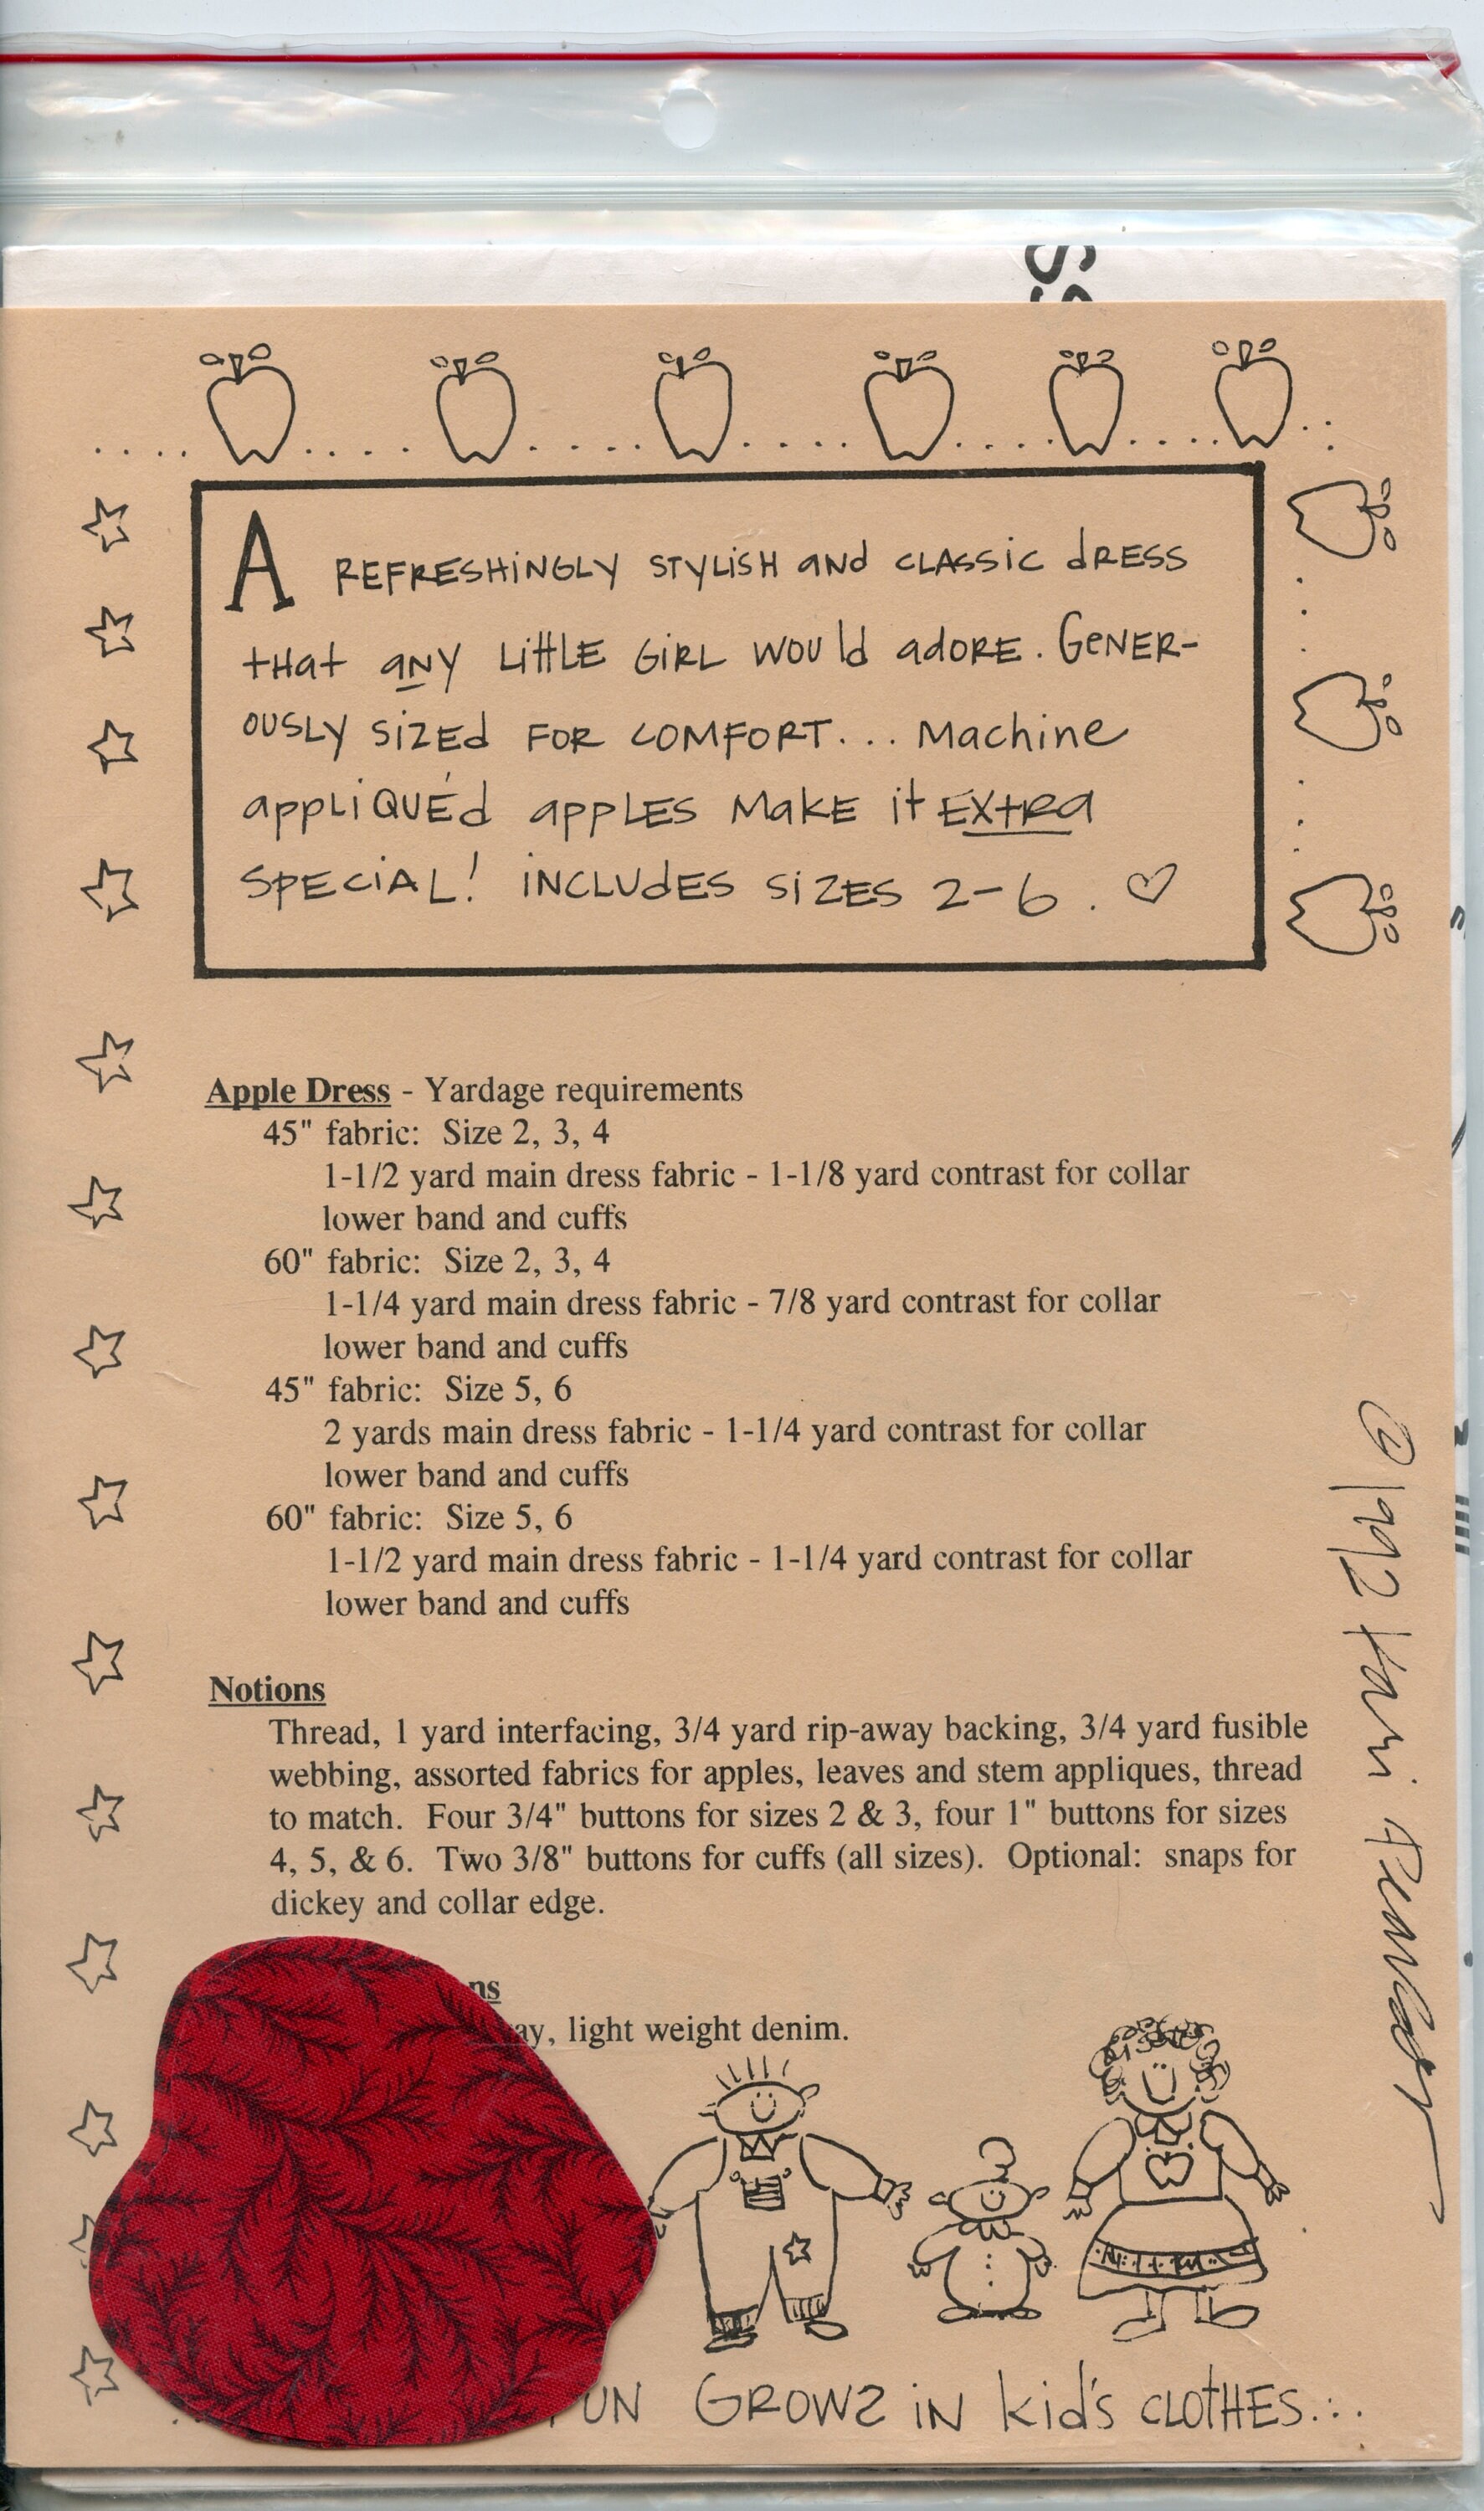 A REFRESHINGLY STYLISH and CLASSIC dRESS
tHat aNY LittLE GIRL WOULD adORE. GENER-
OUSLY SIZEd FOR COMFORT... Machine
appLIQUÉd appLES Make it EXtRa
SPECIAL! INCLUdES SIZES 2-6. ♡
Apple Dress - Yardage requirements
45" fabric: Size 2, 3, 4
1-1/2 yard main dress fabric - 1-1/8 yard contrast for collar
lower band and cuffs
60" fabric: Size 2, 3, 4
1-1/4 yard main dress fabric - 7/8 yard contrast for collar
lower band and cuffs
45" fabric: Size 5, 6
2 yards main dress fabric - 1-1/4 yard contrast for collar
lower band and cuffs
60" fabric: Size 5, 6
1-1/2 yard main dress fabric - 1-1/4 yard contrast for collar
lower band and cuffs
Notions
Thread, 1 yard interfacing, 3/4 yard rip-away backing, 3/4 yard fusible
webbing, assorted fabrics for apples, leaves and stem appliques, thread
to match. Four 3/4" buttons for sizes 2 & 3, four 1" buttons for sizes
4, 5, & 6. Two 3/8" buttons for cuffs (all sizes). Optional: snaps for
dickey and collar edge.
light weight denim.
GROWS iN kid's CLOtHES...
© 1992